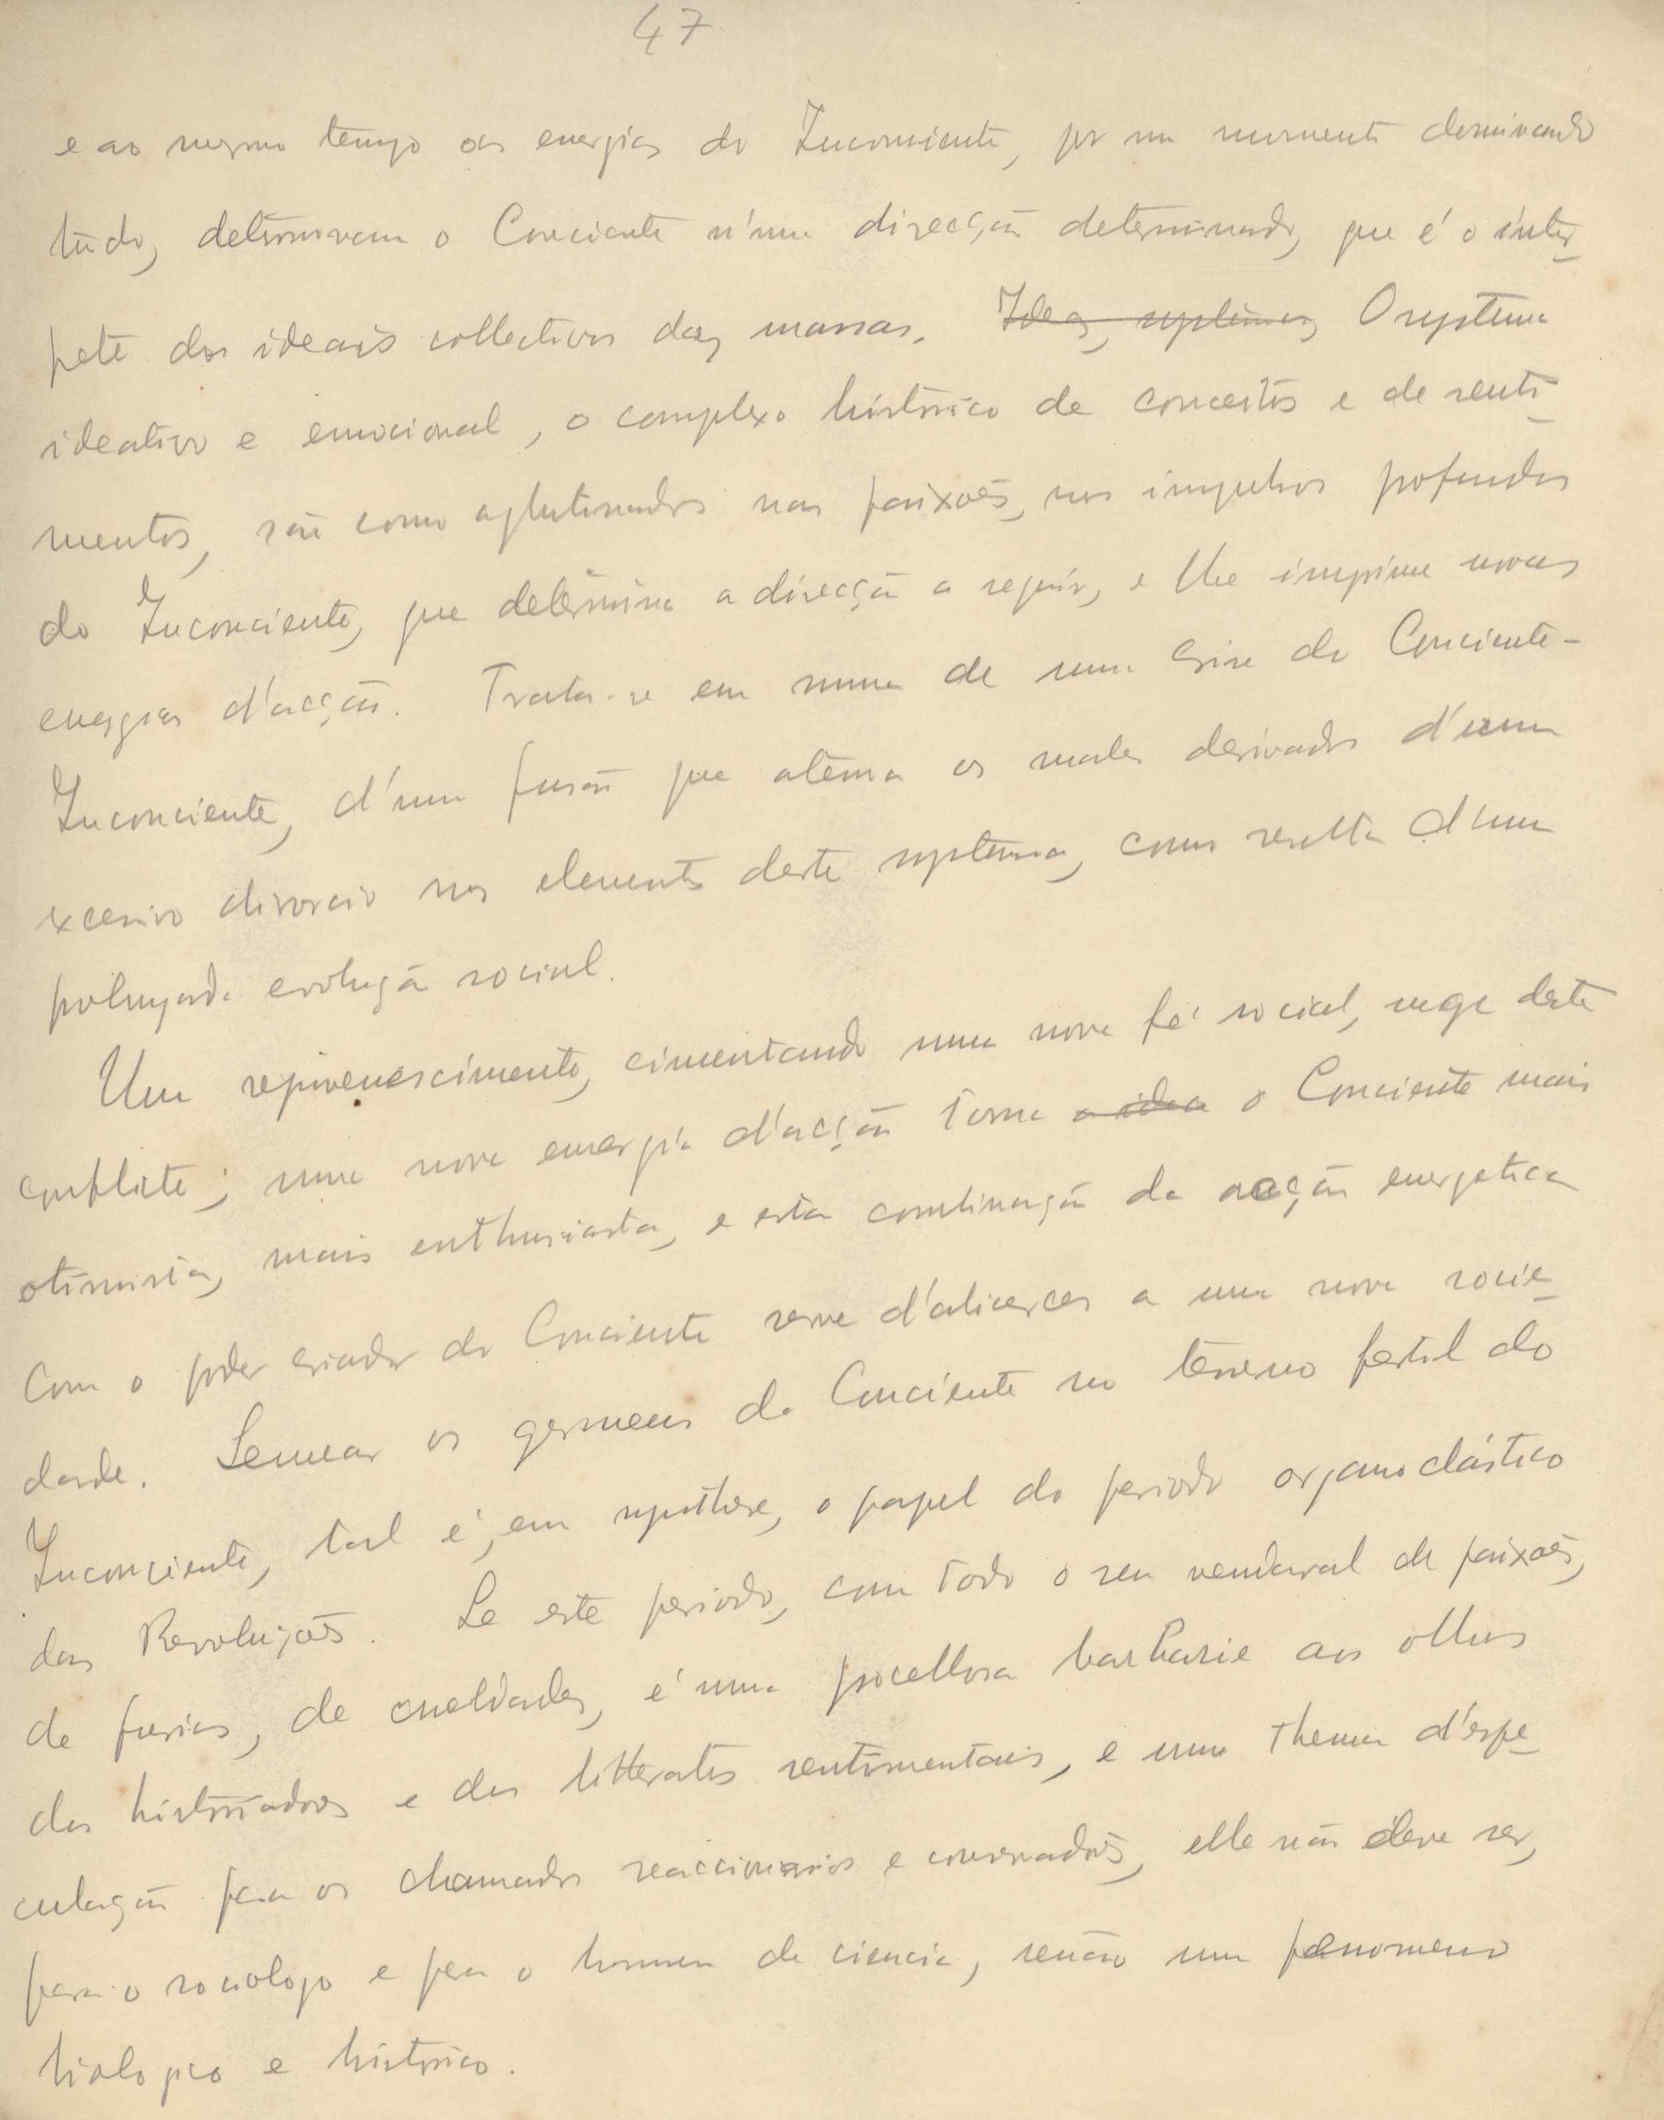 47
e ao mesmo tempo as energias do Inconsciente, por um momento dominando
tudo, determinam o Conciente n'uma direcção determinada, que é o inter_
prete dos ideais collectivos das massas. ~~Ideas, systemas,~~ O systema
ideativo e emocional, o complexo histórico de conceitos e de senti_
mentos, são como aglutinados nas paixões, nos impulsos profundos
do Inconciente, que determina a direcção a seguir, e lhe imprime novas
energias d'acção. Trata-se em summa de uma crise do Conciente-
Inconciente, d'uma fusão que atenua os males derivados d'um
excessivo divorcio nos elementos deste systema, como resulta d'uma
prolongada evolução social.
Um rejuvenescimento, cimentando uma nova fé social, surge deste
conflito; uma nova energia d'acção torna ~~a idea~~ o Conciente mais
otimista, mais enthusiasta, e esta combinação da acção energetica
com o poder criador do Conciente serve d'alicerces a uma nova socie_
dade. Semear os germens do Conciente no terreno fertil do
Inconciente, tal é, em synthese, o papel do periodo organoclástico
das Revoluções. Se este periodo, com todo o seu vendaval de paixões,
de furias, de crueldades, é uma procellosa barbarie aos olhos
dos historiadores e dos litteratos sentimentais, e um thema d'espe_
culação para os chamados reaccionarios e conservadores, elle não deve ser,
para o sociologo e para o homem de ciencia, senão um fenomeno
biologico e histórico.